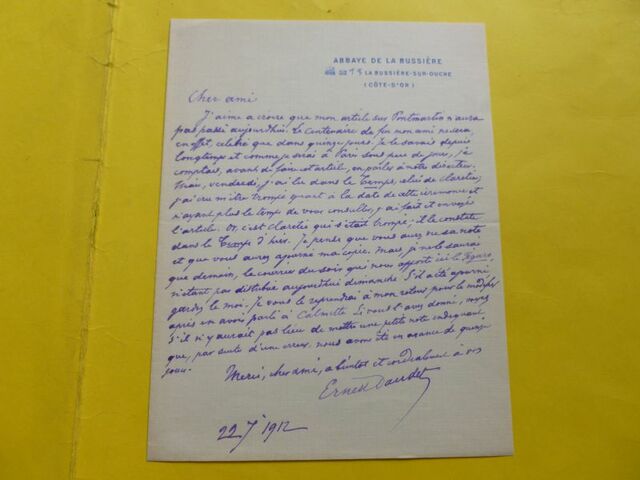 ABBAYE DE LA BUSSIÈRE
LA BUSSIÈRE-SUR-OUCHE
(CÔTE-D'OR)
Cher ami
J'aime à croire que mon article sur Pontmartin n'aura
pas passé aujourd'hui. Le centenaire de feu mon ami ne sera,
en effet, célébré que dans quinze jours. Je le savais depuis
longtemps et comme je serai à Paris sous peu de jours, je
comptais, avant de faire cet article, en parler à notre directeur.
Mais, vendredi, j'ai lu dans le Temps, celui de Claretie,
j'ai cru m'être trompé quant à la date de cette cérémonie et
n'ayant plus le temps de vous consulter, j'ai fait et envoyé
l'article. Or, c'est Claretie qui s'était trompé; il le constate
dans le Temps d'hier. Je pense que vous aurez vu sa note
et que vous aurez ajourné ma copie. Mais je ne le saurai
que demain, le courrier du soir qui nous apporte ici le Figaro,
n'étant pas distribué aujourd'hui dimanche. S'il a été ajourné
gardez le moi. Je vous le reprendrai à mon retour pour le modifier
après en avoir parlé à Calmette. Si vous l'avez donné, voyez
s'il n'y aurait pas lieu de mettre une petite note indiquant
que, par suite d'une erreur, nous avons été en avance de quinze
jours.
Merci, cher ami, à bientôt et cordialement à vous
Ernest Daudet
22 7e 1912